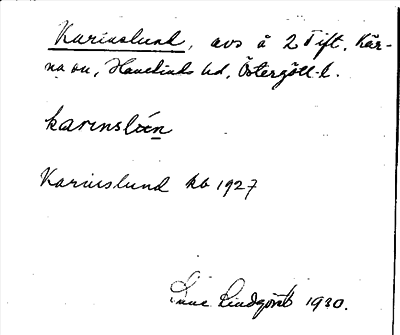 Karinslund, avs å 2 Tift. Kär-
na sn, Hanekinds hd, Östergötl. l.
karinslún
Karinslund kb 1927
Sune Lindqvist 1930.